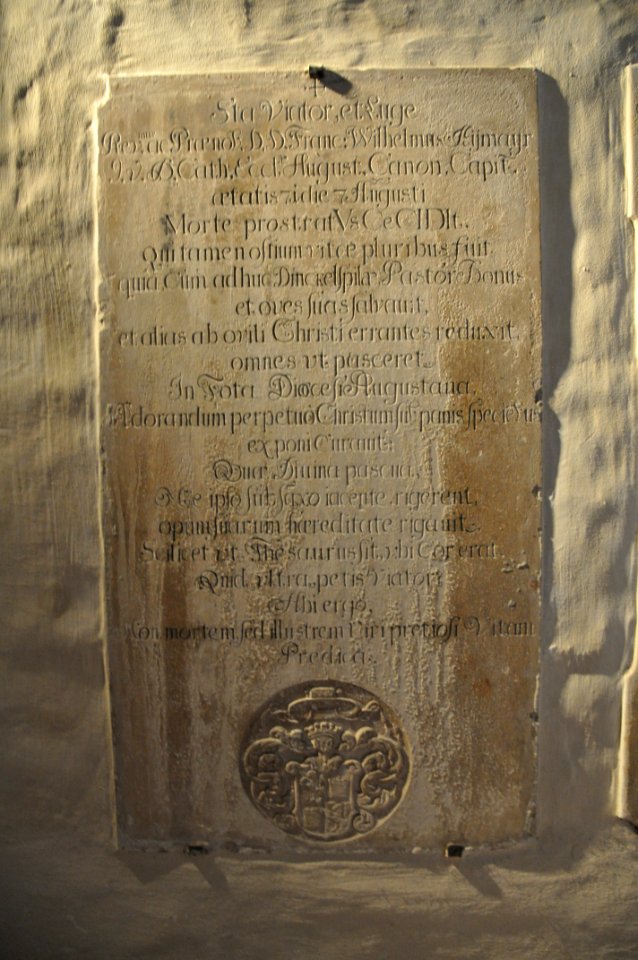 Sta Viator, et Luge
Rev.mus ac Prænob. D.D. Franc: Wilhelmus
Cath. Eccl. August. Canon. Capit.
ætatis 71 die 7 Augusti
Morte prostratVs CeCIDIt.
Qui tamen ostium vitæ pluribus fuit.
quia cum adhuc Dinckelspilæ Pastor Bonus
et oves suas salvavit,
et alias ab ovili Christi errantes reduxit.
omnes vt pasceret
In Tota Diœcesi Augustana
Adorandum perpetuò Christum sub panis speciebus
exponi curavit:
Divina pascua,
Ne ipso sub saxo iacente rigerent,
opum suarum hæreditate rigavit,
Scilicet vt Thesaurus sit, vbi Cor erat.
Quid vltra petis Viator?
Abi ergo,
Non mortem, sed illustrem Viri pretiosi Vitam
Predica.